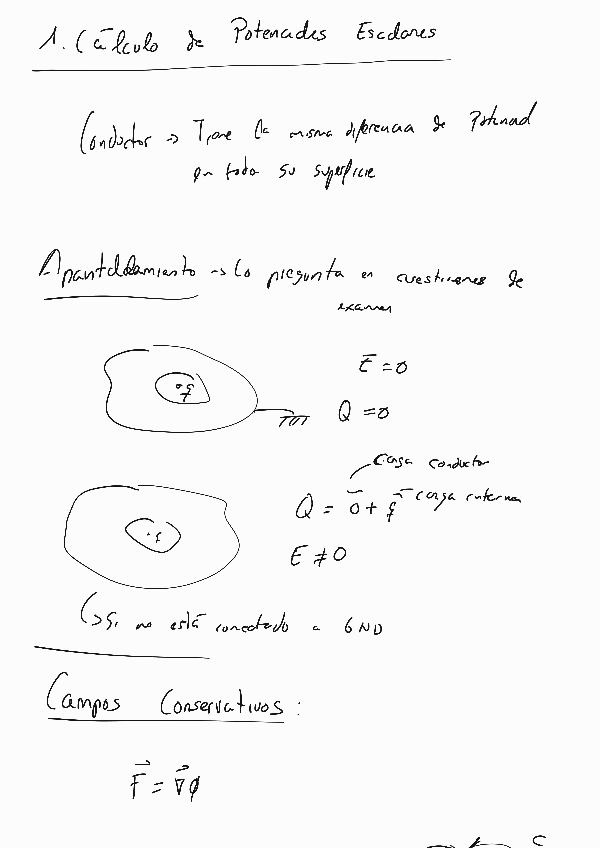 1. Cálculo de Potenciales Escalares
Conductor -> Tiene la misma diferencia de Potencial
en todo su superficie
Apantallamiento -> Lo pregunta en cuestiones de
examen
q
E = 0
Q = 0
Carga conductor
Q = 0 + q carga interna
q
E ≠ 0
Si no está conectado a GND
Campos Conservativos:
F = ∇φ